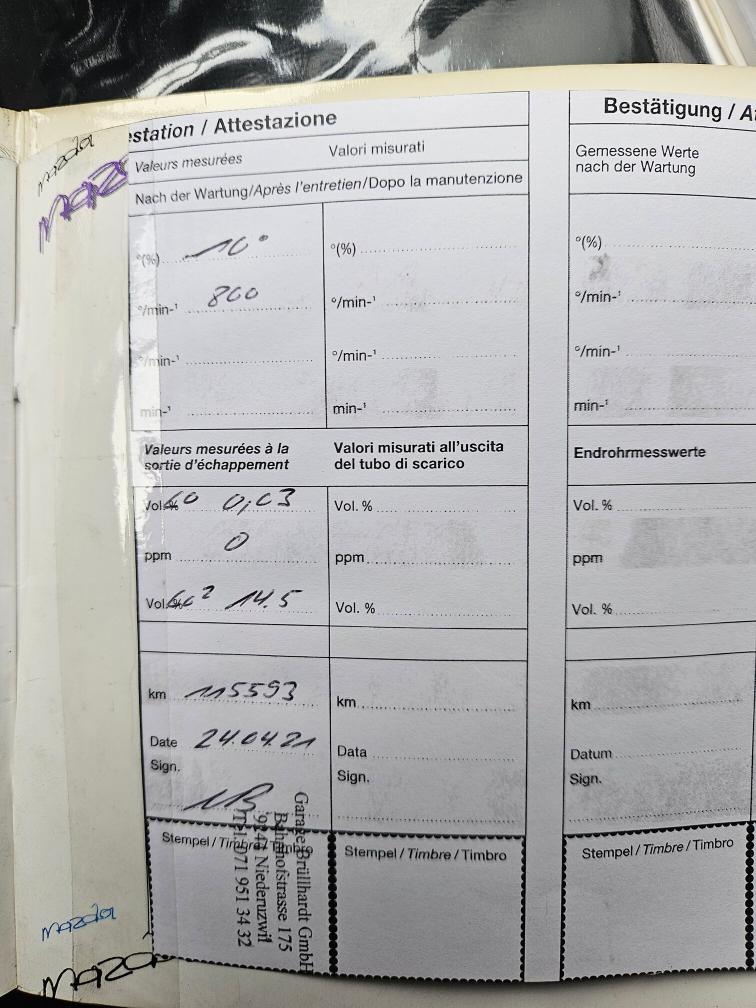 estation / Attestazione
Valeurs mesurées
Valori misurati
Nach der Wartung/Après l'entretien/Dopo la manutenzione
°(%) 10°
°/min-¹ 800
°/min-¹
min-¹
°(%)
°/min-¹
°/min-¹
min-¹
Valeurs mesurées à la
sortie d'échappement
Valori misurati all'uscita
del tubo di scarico
Vol.% CO 0,03
ppm 0
Vol.% CO² 14.5
Vol. %
ppm
Vol. %
km 115593
Date 24.04.21
Sign.
km
Data
Sign.
Stempel / Timbre / Timbro
Garage Brüllhardt GmbH
Bahnhofstrasse 175
9244 Niederuzwil
Tel. 071 951 34 32
Stempel / Timbre / Timbro
Bestätigung / A
Gemessene Werte
nach der Wartung
°(%)
°/min-¹
°/min-¹
min-¹
Endrohrmesswerte
Vol. %
ppm
Vol. %
km
Datum
Sign.
Stempel / Timbre / Timbro
mazda
mazda
mazda
mazda